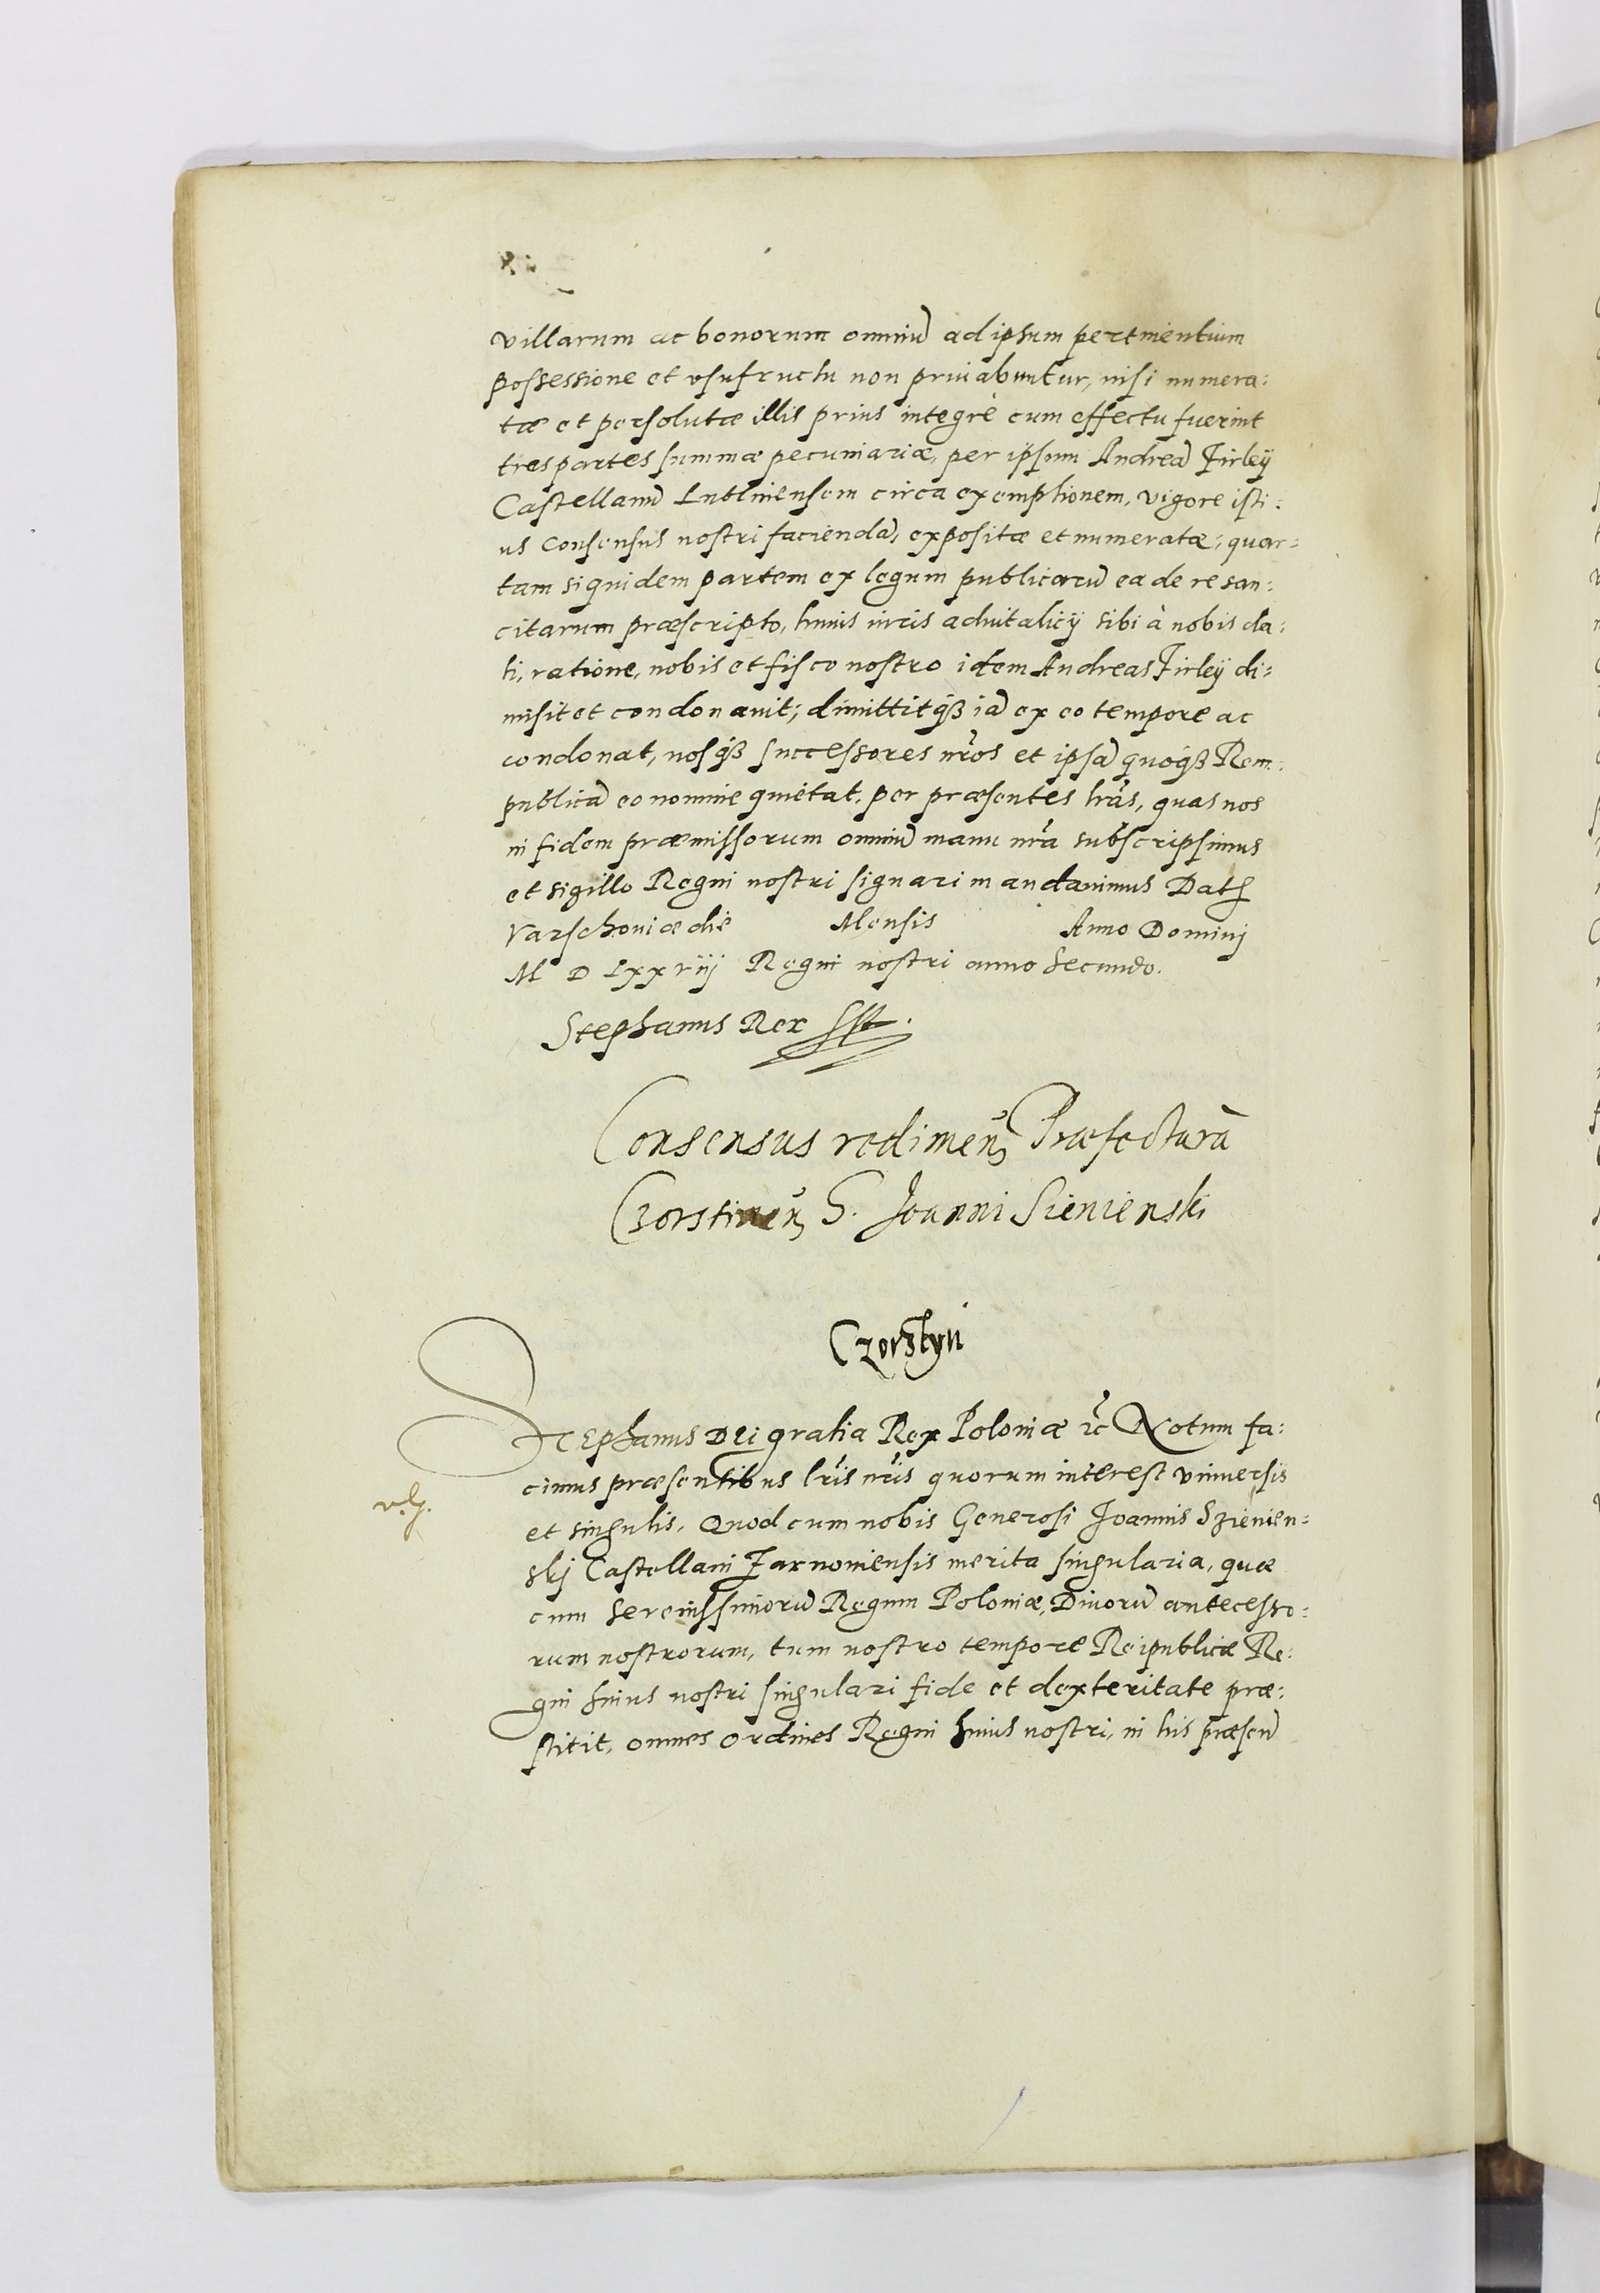 villarum ac bonorum omniū ad ipsum pertinentium
possessione et vsufructu non priuabuntur, nisi numera:
tæ et persolutæ illis prius integrè cum effectu fuerint
tres partes summæ pecuniariæ, per ipsum Andreā Firleÿ
Castellanū Lublinensem circa exemptionem, vigore isti:
us Consensus nostri faciendā, expositæ et numeratæ; quar=
tam siquidem partem ex legum publicarū ea de re san:
citarum præscripto, huius iuris aduitalicÿ sibi à nobis da:
ti, ratione, nobis et fisco nostro idem Andreas Firleÿ di:
misit et condonauit; dimittitqȝ iā ex eo tempore ac
condonat, nosqȝ successores nr̃os et ipsā quoqȝ Rem:
publicā eo nomine quietat, per præsentes lr̃as, quas nos
in fidem præmissorum omniū manu nr̃a subscripsimus
et sigillo Regni nostri signari mandauimus Dat
Varschouiæ die Mensis Anno Dominj
M D LXXViij Regni nostri anno Secundo.
Stephanus Rex sst.
Consensus redimen̄ Præfecturā
Czorstinen̄ G. Joanni Sienienski
Czorstyn
Stephanus Dei gratia Rex Poloniæ ꝛc̃ Notum fa:
cimus præsentibus lr̃is nr̃is quorum interest vniuersis
et singulis. Quod cum nobis Generosi Joannis Szienien=
skj Castellani Zarnouiensis merita singularia, quæ
cum Serenissimorū Regum Poloniæ, Diuorū antecesso:
rum nostrorum, tum nostro tempore Reipublicæ Re:
gni huius nostri singulari fide et dexteritate præ:
stitit, omnes ordines Regni huius nostri, in his præsen̄